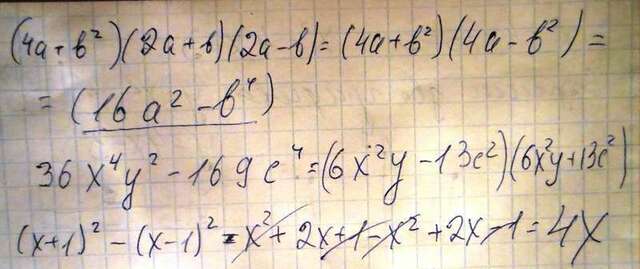 (4a + b²)(2a + b)(2a - b) = (4a + b²)(4a - b²) =
= (16a² - b⁴)
36x⁴y² - 169c⁴ = (6x²y - 13c²)(6x²y + 13c²)
(x+1)² - (x-1)² = x² + 2x + 1 - x² + 2x - 1 = 4x